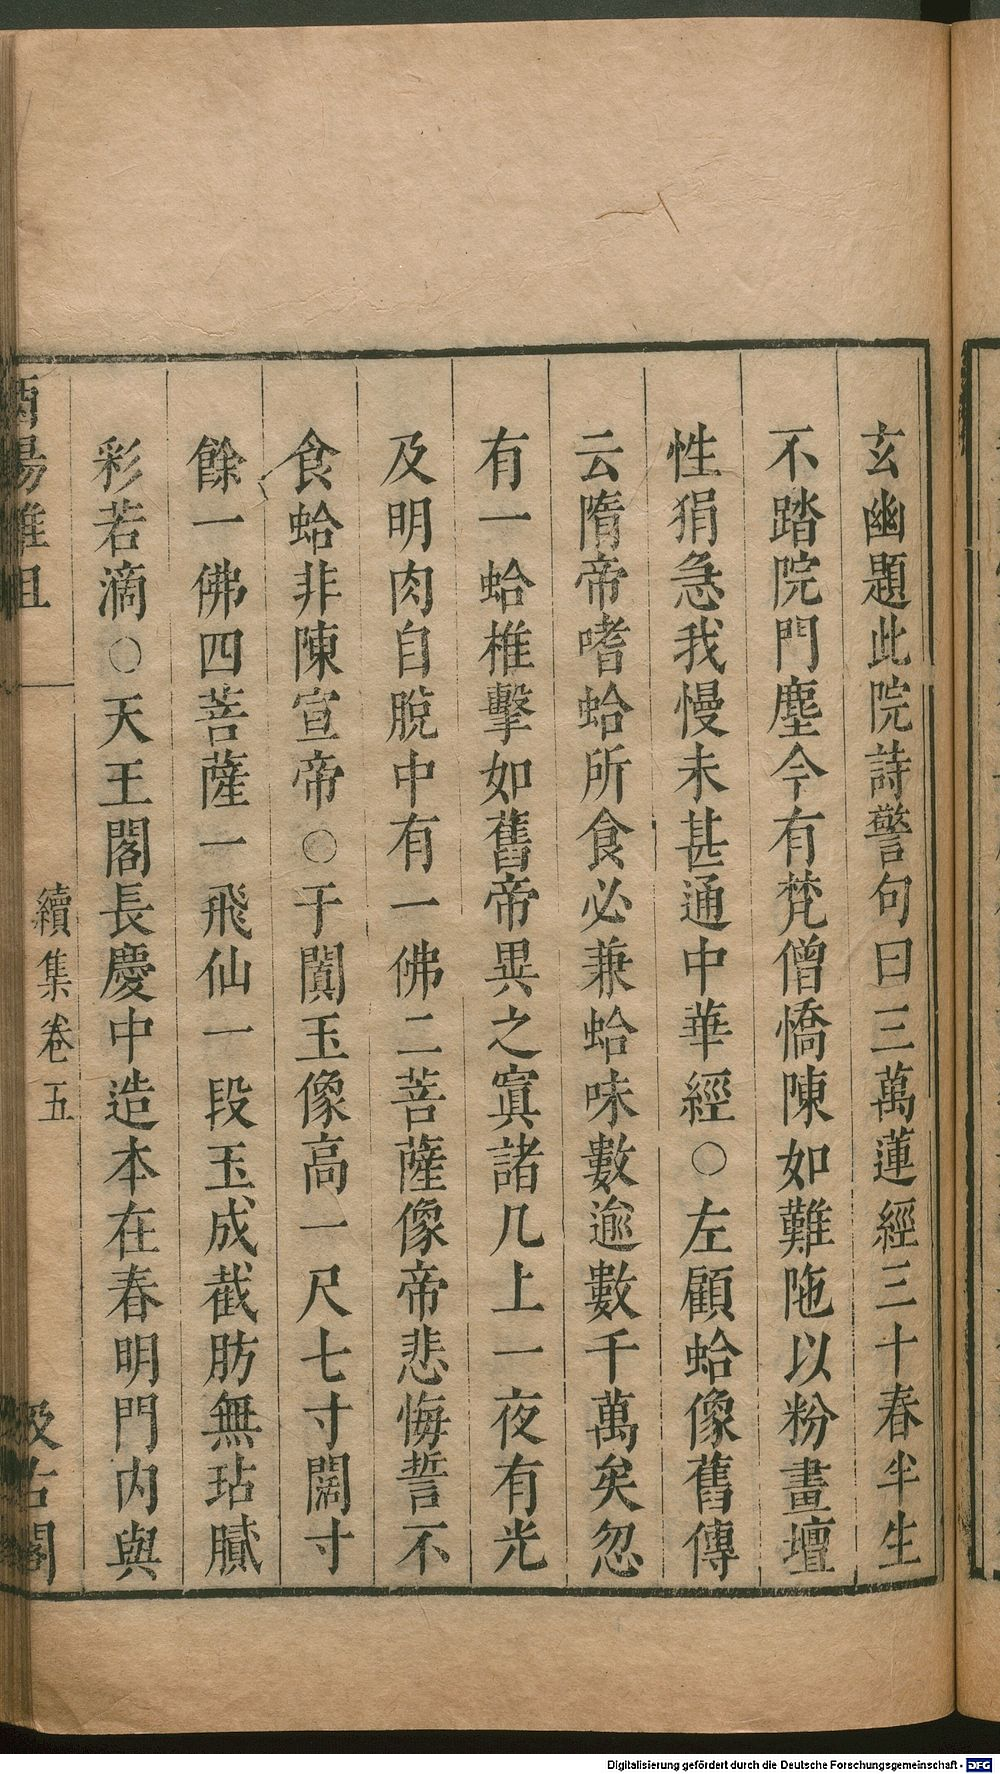 玄幽題此院詩警句曰三萬蓮經三十春半生
不踏院門塵今有梵僧憍陳如難陁以粉畫壇
性狷急我慢未甚通中華經○左顧蛤像舊傳
云隋帝嗜蛤所食必兼蛤味數逾數千萬矣忽
有一蛤椎擊如舊帝異之寘諸几上一夜有光
及明肉自脫中有一佛二菩薩像帝悲悔誓不
食蛤非陳宣帝○于闐玉像高一尺七寸闊寸
餘一佛四菩薩一飛仙一段玉成截肪無玷膩
彩若滴○天王閣長慶中造本在春明門内與
酉陽雜俎 續集卷五 汲古閣
Digitalisierung gefördert durch die Deutsche Forschungsgemeinschaft - DFG